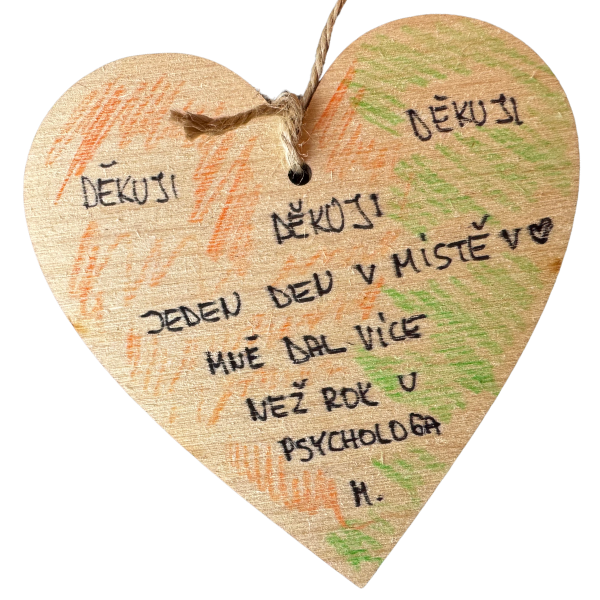 DĚKUJI
DĚKUJI
DĚKUJI
JEDEN DEN V MÍSTĚ V ♥
MNĚ DAL VÍCE
NEŽ ROK U
PSYCHOLOGA
M.